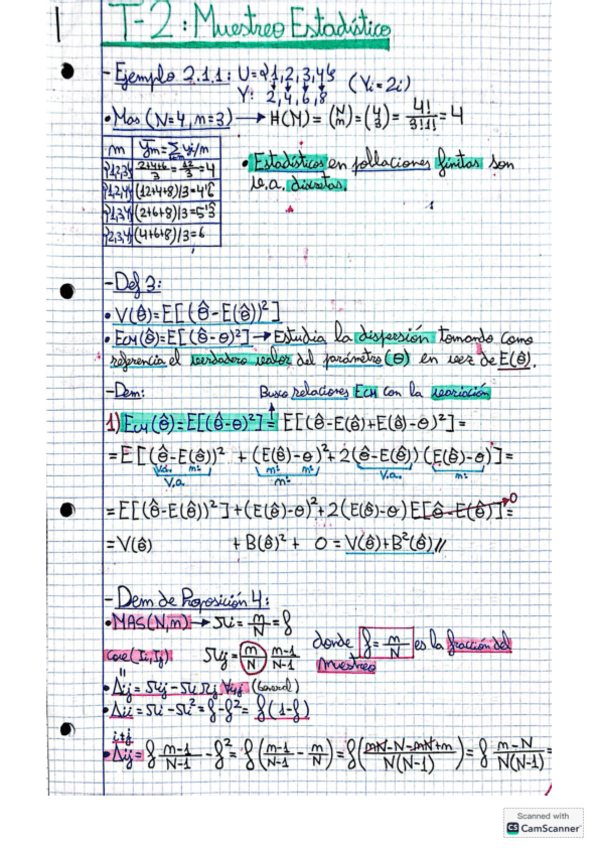 T-2: Muestreo Estadístico
- Ejemplo 2.1.1: U={1,2,3,4}
Y: 2,4,6,8 (Yi=2i)
• Mas (N=4, n=3) → H(M) = (N n) = (4 3) = 4!/3!1! = 4
m | ȳm = Σ yi/n
{1,2,3} | (2+4+6)/3 = 12/3 = 4
{1,2,4} | (2+4+8)/3=4'6
{1,3,4} | (2+6+8)/3=5'3
{2,3,4} | (4+6+8)/3=6
• Estadísticos en poblaciones finitas son
v.a. discretas.
- Def 3:
• V(θ̂)=E[(θ̂-E(θ̂))²]
• ECM(θ̂)=E[(θ̂-θ)²] → Estudia la dispersión tomando como
referencia el verdadero valor del parámetro (θ) en vez de E(θ̂).
- Dem: Busco relaciones ECM con la variación
1) ECM(θ̂)=E[(θ̂-θ)²] = E[(θ̂-E(θ̂)+E(θ̂)-θ)²]=
=E[(θ̂-E(θ̂))² + (E(θ̂)-θ)²+2(θ̂-E(θ̂))(E(θ̂)-θ)]=
v.a. nº nº nº v.a. nº
v.a. nº
=E[(θ̂-E(θ̂))²]+(E(θ̂)-θ)²+2(E(θ̂)-θ)E[θ̂-E(θ̂)]= 0
=V(θ̂) +B(θ̂)²+ 0 = V(θ̂)+B²(θ̂)//
- Dem de Proposición 4:
• MAS(N,n) → πi = n/N = f
donde f = n/N es la fracción del
muestreo
cov(Ii,Ij) πij = n/N n-1/N-1
"
• Δij = πij - πi πj ∀i,j (General)
• Δii = πi - πi² = f-f² = f(1-f)
i≠j
• Δij = f n-1/N-1 - f² = f(n-1/N-1 - n/N) = f(nN-N-nN+n/N(N-1)) = f n-N/N(N-1) =
Scanned with
CS CamScanner